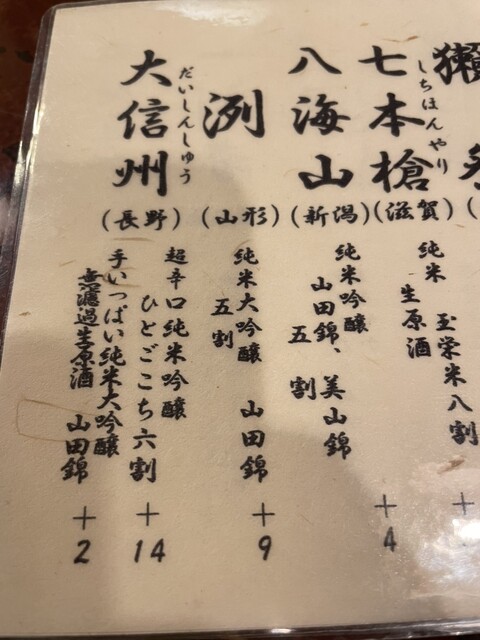 獺
七本槍
しちほんやり
(滋賀)
純米 玉栄米八割
生原酒
+4
八海山
(新潟)
純米吟醸
山田錦、美山錦
五割
洌
(山形)
純米大吟醸 山田錦
五割
+9
大信州
だいしんしゅう
(長野)
超辛口純米吟醸
ひとごこち六割
+14
手いっぱい純米大吟醸
無濾過生原酒 山田錦
+2